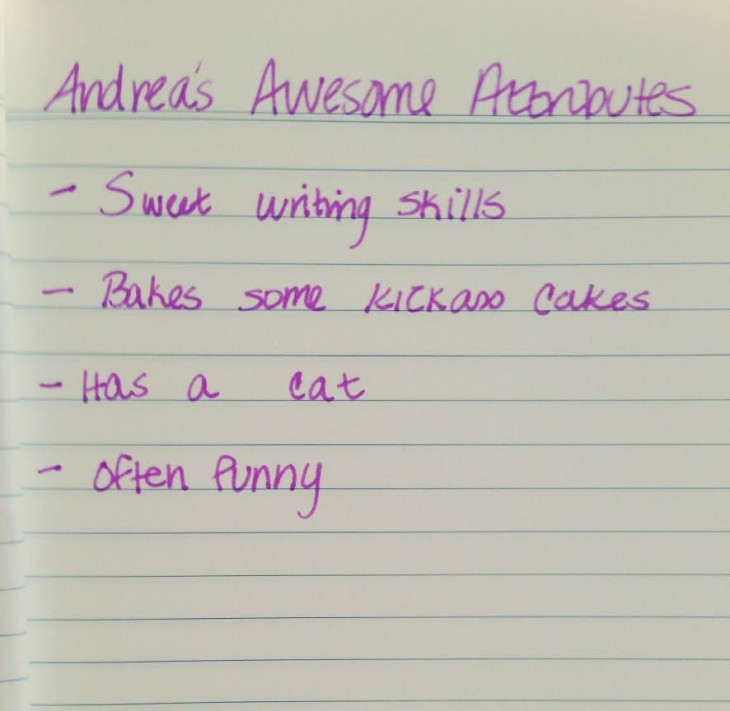 Andrea's Awesome Attributes
- Sweet writing skills
- Bakes some kickass cakes
- Has a cat
- often funny